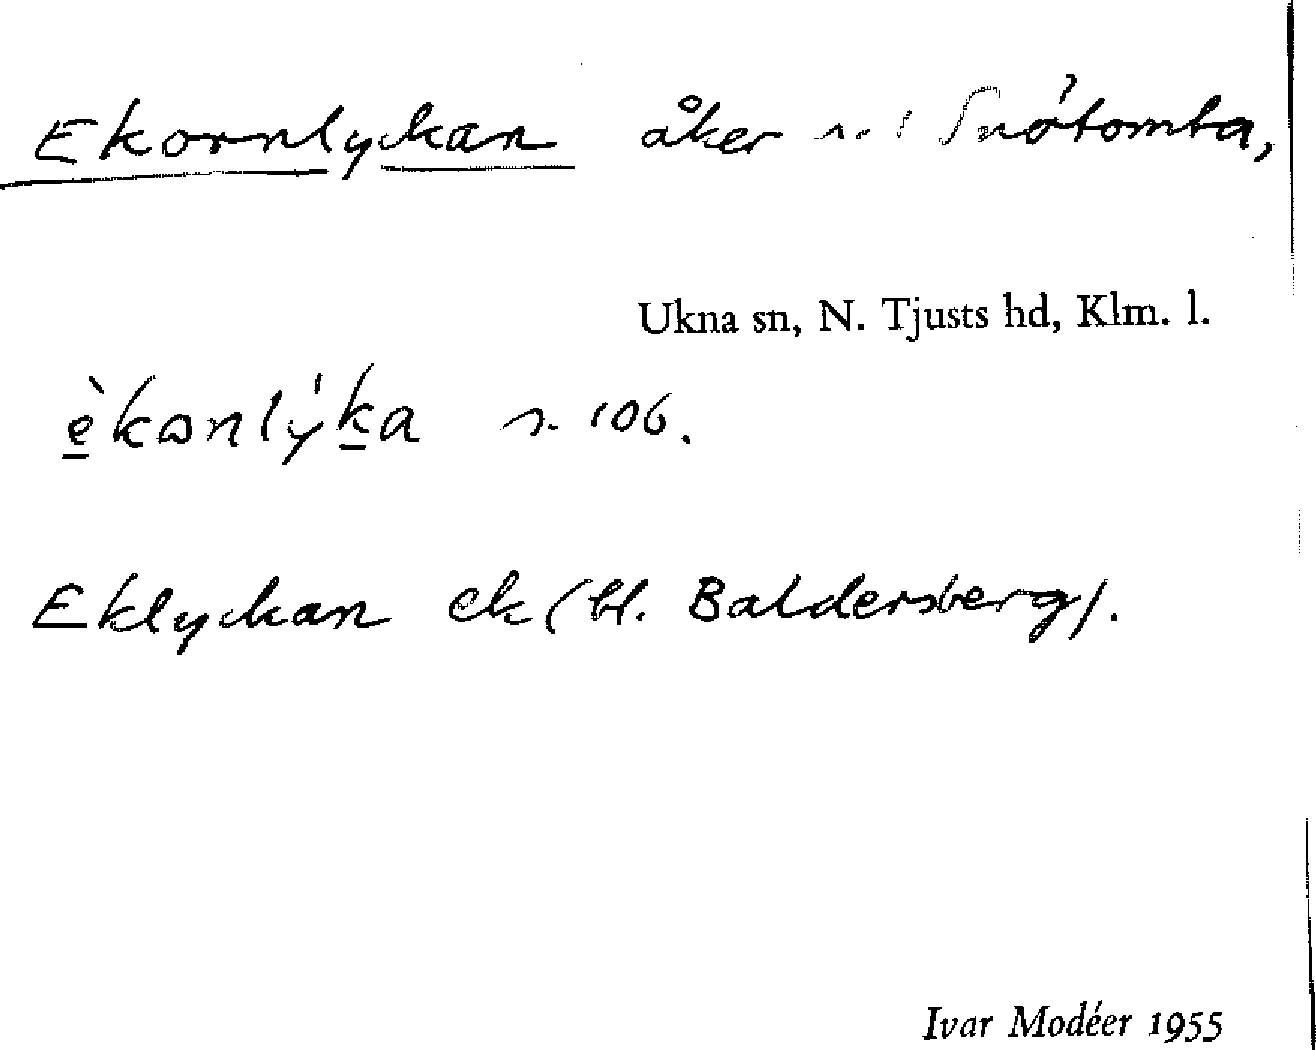 Ekornlyckan åker
Ukna sn, N. Tjusts hd, Klm. l.
è̱kɷnlý̍ḵa s. 106.
Eklyckan ek (bl. Baldersberg).
Ivar Modéer 1955